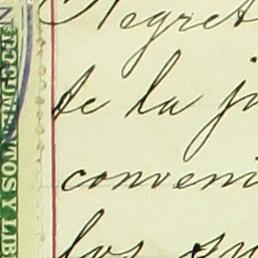 Negret
te la ju
conveni
los su
UMENTOS Y LIB